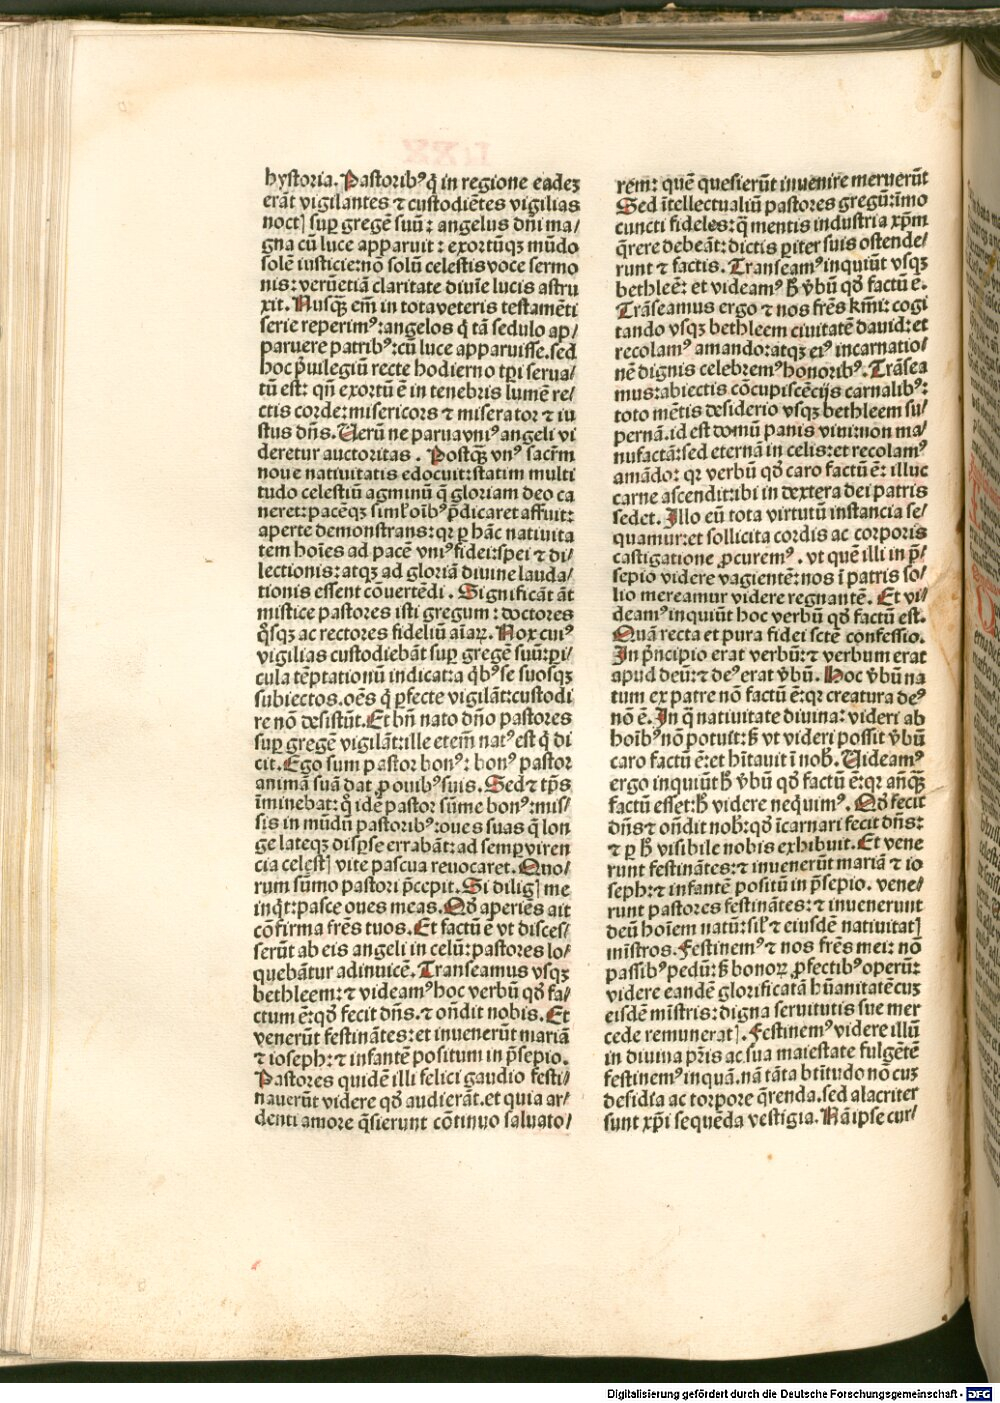 hystoria. Pastoribꝰ q̇ in regione eadeꝫ
erāt vigilantes ⁊ custodiētes vigilias
noctꝭ suꝑ gregē suū: angelus dn̄i ma/
gna cū luce apparuit: exortūqꝫ mūdo
solē iusticie: nō solū celestis voce sermo
nis: verūetiā claritate diuīe lucis astru
xit. Nusqꝫ em̄ in tota veteris testamēti
serie reperimꝰ: angelos q̇ tā sedulo ap/
paruere patribꝰ: cū luce apparuisse. sed
hoc p̄uilegiū recte hodierno tp̄i serua/
tū est: qn̄ exortū ē in tenebris lumē re/
ctis corde: misericors ⁊ miserator ⁊ iu
stus dn̄s. Uerū ne parua vniꝰ angeli vi
deretur auctoritas. Postqꝫ vnꝰ sacrm̄
noue natiuitatis edocuit: statim multi
tudo celestiū agminū q̄ gloriam deo ca
neret: pacēqꝫ siml̓ oībꝰ p̄dicaret affuit:
aperte demonstrans: qꝛ ꝑ hāc natiuita
tem hoīes ad pacē vniꝰ fidei: spei ⁊ di/
lectionis: atqꝫ ad gloriā diuine lauda/
tionis essent cōuertēdi. Significāt āt
mistice pastores isti gregum: doctores
q̊sqꝫ ac rectores fideliū aīaꝝ. Nox cuiꝰ
vigilias custodiebāt suꝑ gregē suū: ꝑi/
cula tēptationū indicat: a q̇bꝰ se suosqꝫ
subiectos. oēs q̇ ꝑfecte vigilāt: custodi
re nō desistūt. Et bn̄ nato dn̄o pastores
suꝑ gregē vigilāt: ille etem̄ natꝰ est q̇ di
cit. Ego sum pastor bonꝰ: bonꝰ pastor
animā suā dat ꝓ ouibꝰ suis. Sed ⁊ tp̄s
īminebat: q̊ idē pastor sūme bonꝰ: mis/
sis in mūdū pastoribꝰ: oues suas q̄ lon
ge lateqꝫ disꝑse errabāt: ad semp viren
cia celestꝭ vite pascua reuocaret. Quo/
rum sūmo pastori p̄cepit. Si diligꝭ me
inq̇t: pasce oues meas. Qd̓ aperiēs ait
cōfirma frēs tuos. Et factū ē vt disces/
serūt ab eis angeli in celū: pastores lo/
quebātur adinuicē. Transeamus vsqꝫ
bethleem: ⁊ videamꝰ hoc verbū qd̓ fa/
ctum ē: qd̓ fecit dn̄s. ⁊ on̄dit nobis. Et
venerūt festinātes: et inuenerūt mariā
⁊ ioseph: ⁊ infantē positum in p̄sepio.
Pastores quidē illi felici gaudio festi/
nauerūt videre qd̓ audierāt. et quia ar/
denti amore q̄sierunt cōtinuo saluato/
rem: quē quesierūt inuenire meruerūt
Sed ītellectualiū pastores gregū: īmo
cuncti fideles: q̄ mentis industria xp̄m
q̄rere debeāt: dictis ꝑiter suis ostende/
runt ⁊ factis. Transeamꝰ inquiūt vsqꝫ
bethleē: et videamꝰ ħ v̓bū qd̓ factū ē.
Trāseamus ergo ⁊ nos frēs km̄i: cogi
tando vsqꝫ bethleem ciuitatē dauid: et
recolamꝰ amando: atqꝫ eiꝰ incarnatio/
nē dignis celebremꝰ honoribꝰ. Trāsea
mus: abiectis cōcupiscēcijs carnalibꝰ:
toto mētis desiderio vsqꝫ bethleem su/
pernā. id est domū panis viui: non ma/
nufactā: sed eternā in celis: et recolamꝰ
amādo: qꝛ verbū qd̓ caro factū ē: illuc
carne ascendit: ibi in dextera dei patris
sedet. Illo eū tota virtutū instancia se/
quamur: et sollicita cordis ac corporis
castigatione ꝓcuremꝰ. vt quē illi in p̄/
sepio videre vagientē: nos ī patris so/
lio mereamur videre regnantē. Et vi/
deamꝰ inquiūt hoc verbū qd̓ factū est.
Quā recta et pura fidei scte confessio.
In p̄ncipio erat verbū: ⁊ verbum erat
apud deū: ⁊ deꝰ erat v̓bū. Hoc v̓bū na
tum ex patre nō factū ē: qꝛ creatura deꝰ
nō ē. In q̄ natiuitate diuina: videri ab
hoībꝰ nō potuit: ß vt videri possit v̓bū
caro factū ē: et hītauit ī nob̓. Uideamꝰ
ergo inquiūt ħ v̓bū qd̓ factū ē: qꝛ an̄qꝫ
factū esset: ħ videre nequimꝰ. Qd̓ fecit
dn̄s ⁊ on̄dit nob̓: qd̓ īcarnari fecit dn̄s:
⁊ ꝑ ħ visibile nobis exhibuit. Et vene
runt festinātes: ⁊ inuenerūt mariā ⁊ io
seph: ⁊ infantē positū in p̄sepio. vene/
runt pastores festinātes: ⁊ inuenerunt
deū hoīem natū: sil̓ ⁊ eiusdē natiuitatꝭ
mīstros. Festinemꝰ ⁊ nos frēs mei: nō
passibꝰ pedū: ß bonoꝝ ꝓfectibꝰ operū:
videre eandē glorificatā hūanitatē cuꝫ
eisdē mīstris: digna seruitutis sue mer
cede remuneratꝭ. Festinemꝰ videre illū
in diuina pr̄is ac sua maiestate fulgētē
festinemꝰ inquā. nā tāta btītudo nō cuꝫ
desidia ac torpore q̄renda. sed alacriter
sunt xp̄i sequēda vestigia. Nā ipse cur/
Digitalisierung gefördert durch die Deutsche Forschungsgemeinschaft - DFG